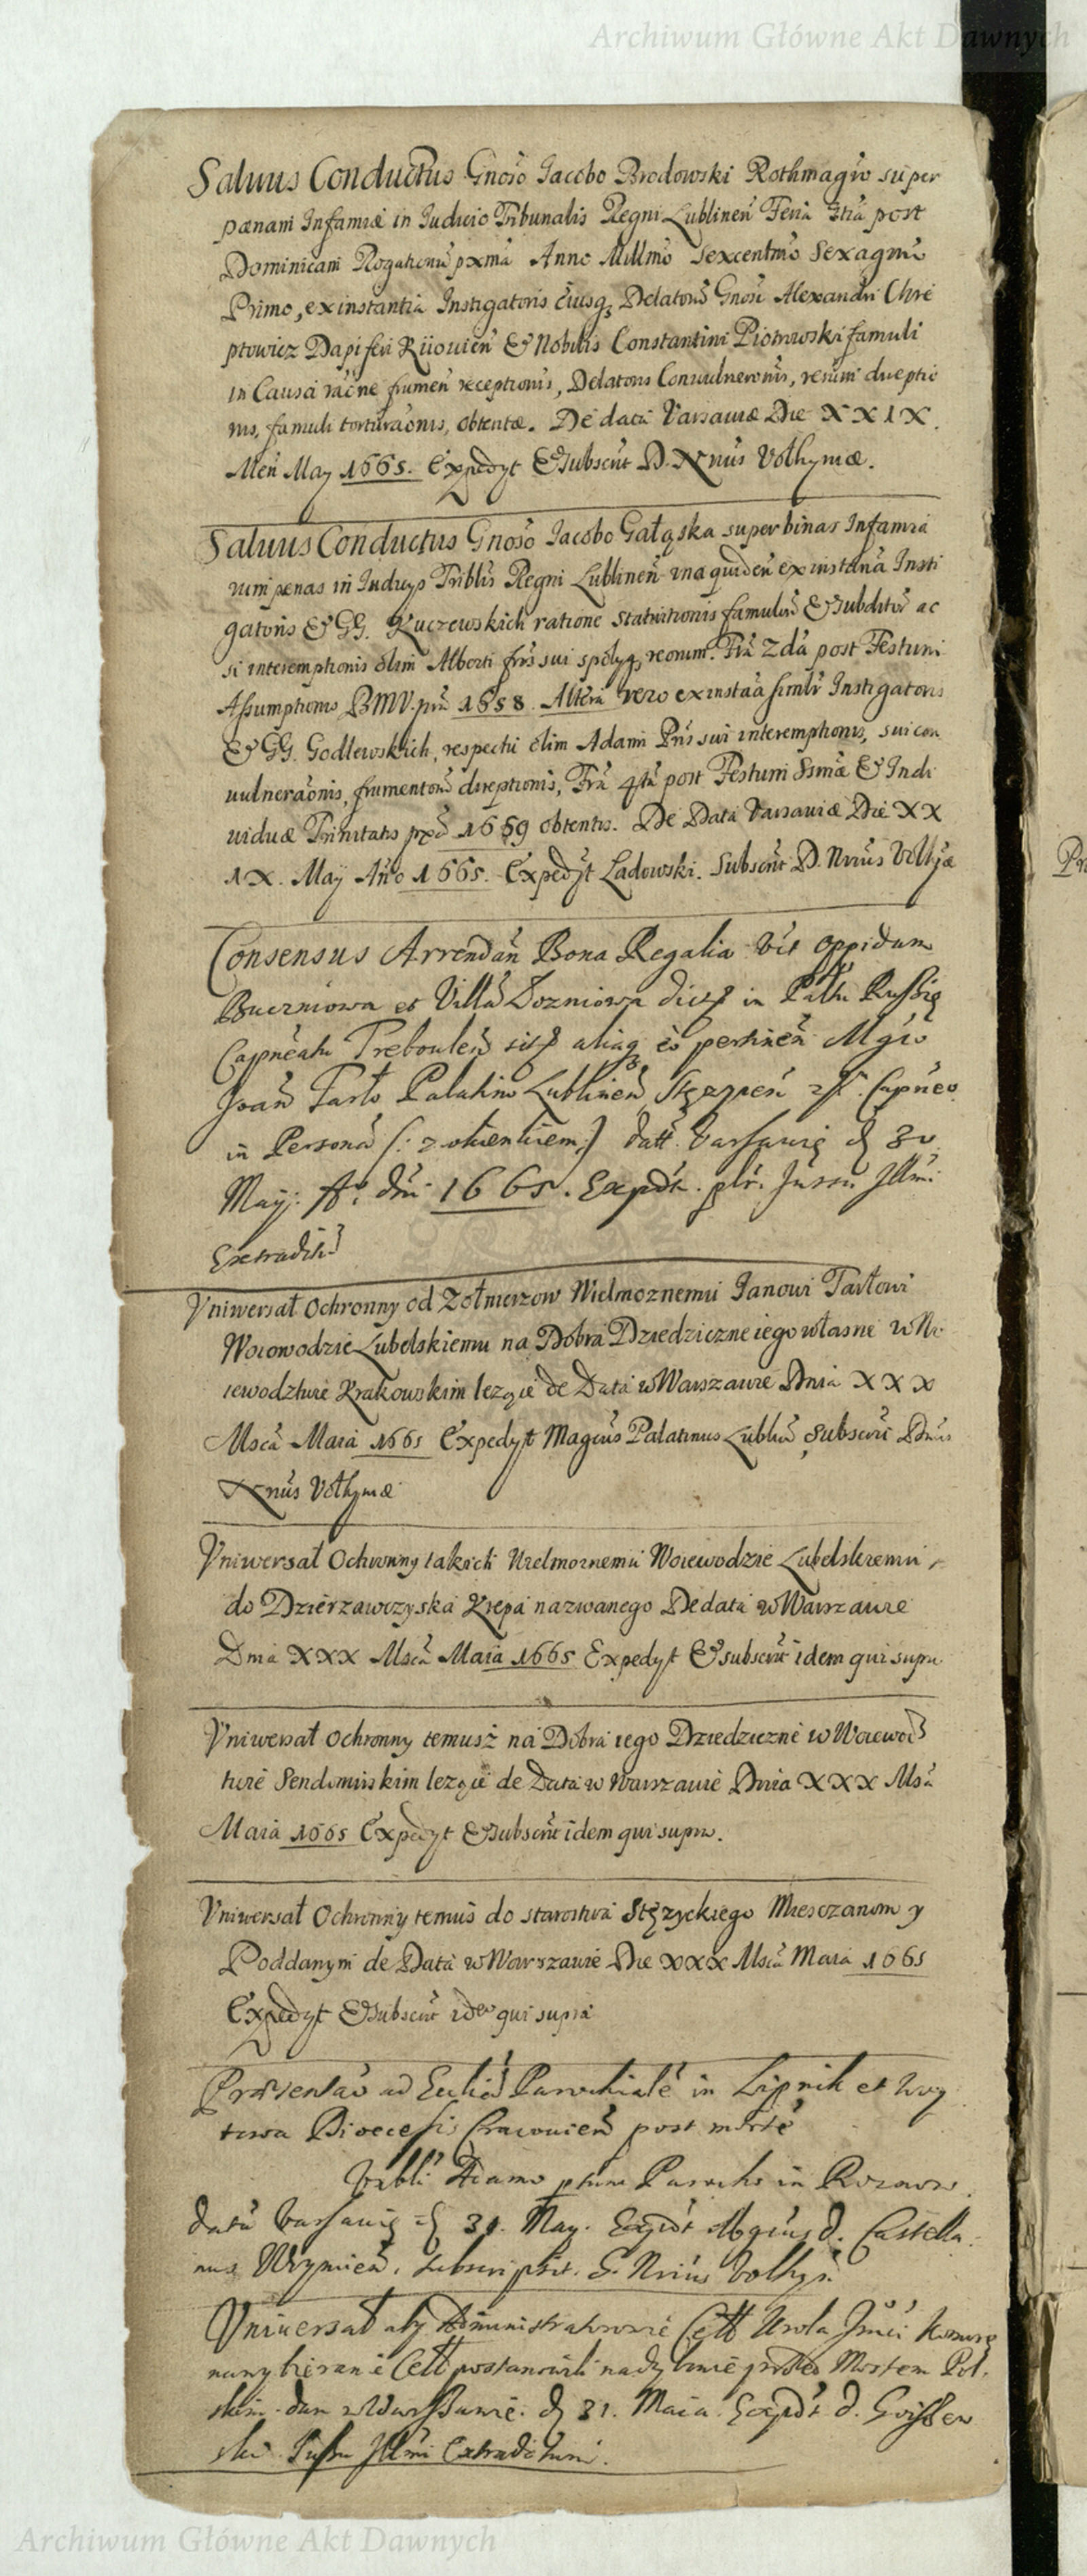 Archiwum Główne Akt Dawnych
Saluus Conductus Gnoso Iacobo Brodowski Rothmagro super
pænam Infamiæ in Iudicio Tribunalis Regni Lublinen Feria post
Dominicam Rogationu pxma Anno Millmo Sexcentmo Sexagmo
Primo, ex instantia Instigatoris eiusq Delatoris Gnosi Alexandri Chre
ptowicz Dapiferi Kiiouien & Nobilis Constantini Piotrowski famuli
in Causa raone frumen receptionis, Delatoris Conuulneronis, rerum direptio
nis, famuli torturaonis, obtentæ. De data Varsauiæ Die XXIX
Men May 1665. Expedyt & Subscrit D. Nrius Volhyniæ.
Saluus Conductus Gnoso Iacobo Gałąska super binas Infamia
rum penas in Iudicys Triblis Regni Lublinen una quidem ex instana Insti
gatoris & GG. Kuczewskich ratione famulor & Subditor ac
si interemptionis olim Alberti fris sui reorum. Fra 2da post Festum
Assumptionis BMV. pra 1658. Altera vero ex instaa simlr Instigatoris
& GG. Godlewskich, respectu olim Adami Pris sui interemptionis, sui con
uulneraonis, frumentoru direptionis, Fra 4ta post Festum Ssmæ & Indi
uiduæ Trinitatis pxa 1659 obtentis. De Data Varsauiæ Die XX
IX. May Ano 1665. Expedyt Ladowski. Subscrit D. Nrius Volhyæ
Consensus Arrendan Bona Regalia vtt oppidum
Buczniowa et Villa dict in Pattu Russię
Capneatu Trebouleñ sit aliaq eo pertinen Mgco
Joan Tarło Palatino Lublinen Stęzycen Capneo
in Persona (: z okienkiem :) datt. Varsauię d 30
May: Ao dni 1665. Expdt. Jussu Illmi
Extraditu
Vniwersał Ochronny od Zołnierzow Wielmoznemu Ianowi Tarłowi
Woiowodzie Lubelskiemu na Dobra Dziedziczne iego własne w Wo
iewodztwie Krakowskim lezące de Data w Warszawie Dnia XXX
Msca Maia 1665 Expedyt Magcus Palatinus Lublin Subscrit Dnus
Nrius Volhyniæ
Vniwersał Ochronny takich Wielmoznemu Woiewodzie Lubelskiemu
do Dzierzawczyska Krepa nazwanego De data w Warszawie
Dnia XXX Msca Maia 1665 Expedyt & subscrit idem qui supra
Vniwersał Ochronny temusz na Dobra iego Dziedziczne w Woiewod
twie Sendomirskim lezące de Data w Warszawie Dnia XXX Msca
Maia 1665 Expedyt & Subscrit idem qui supra.
Vniwersał Ochronny temus do starostwa Stęzyckiego Miesczanom y
Poddanym de Data w Warszawie Die XXX Msca Maia 1665
Expedyt & Subscrit idem qui supra
Præsentao ad Eccliã Parochiale in Lipnik et
Dioecesis Cracouien post morte
Vrbli Adamo Parocho in
data Varsauię d 31. May. Expdt Mgcus d. Castella
nus subscripsit. S. Nrius Volhyn.
Vniuersał aby Administratorowie Cełł Wola Jmci
Cełł postanowili nad przed Mostem Pol.
skim. dan w Warszawie. d 31. Maia. Expdt d.
ski Jussu Illmi Extraditum.
Archiwum Główne Akt Dawnych